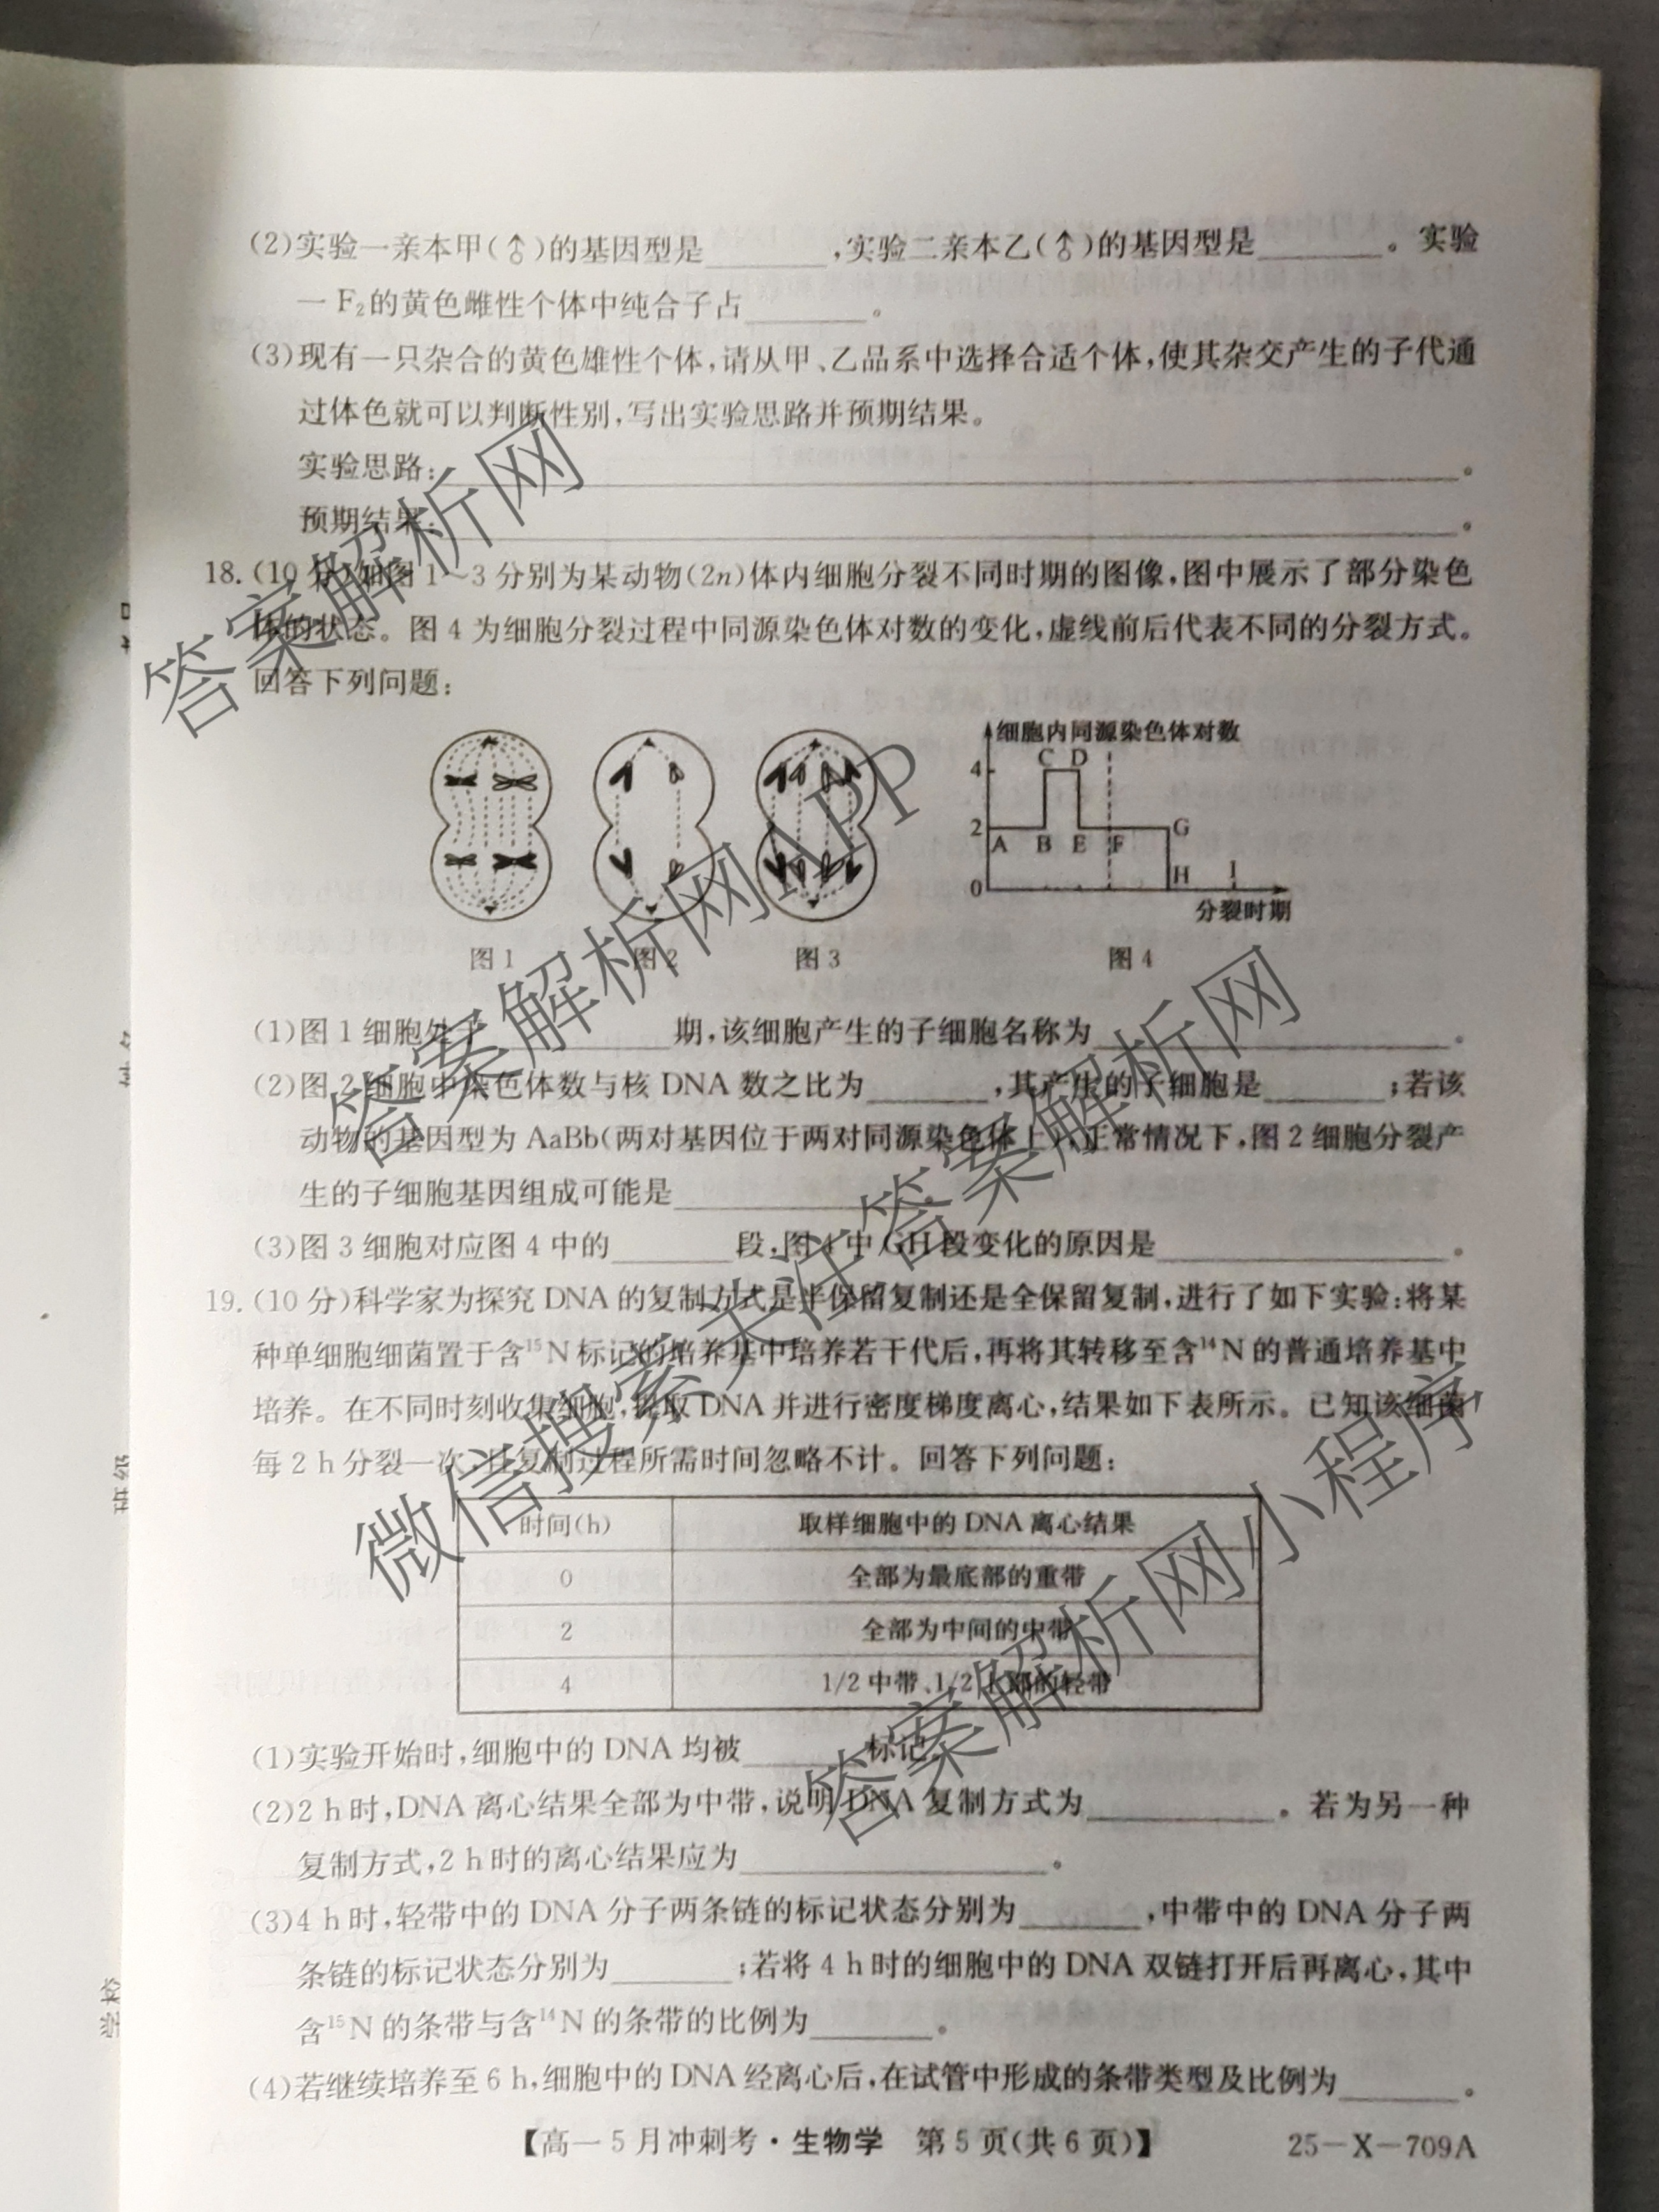 (2)实验一亲本甲(♂)的基因型是________,实验二亲本乙(♂)的基因型是________。实验
一 F₂的黄色雌性个体中纯合子占________。
(3)现有一只杂合的黄色雄性个体,请从甲、乙品系中选择合适个体,使其杂交产生的子代通
过体色就可以判断性别,写出实验思路并预期结果。
实验思路:________。
预期结果:________。
18.(10分)如图1~3分别为某动物(2n)体内细胞分裂不同时期的图像,图中展示了部分染色
体的状态。图4为细胞分裂过程中同源染色体对数的变化,虚线前后代表不同的分裂方式。
回答下列问题:
细胞内同源染色体对数
C D
4
2
A B E F G
H I
0
分裂时期
图1 图2 图3 图4
(1)图1细胞处于________期,该细胞产生的子细胞名称为________。
(2)图2细胞中染色体数与核DNA数之比为________,其产生的子细胞是________;若该
动物的基因型为AaBb(两对基因位于两对同源染色体上),正常情况下,图2细胞分裂产
生的子细胞基因组成可能是________
(3)图3细胞对应图4中的________段,图4中GH段变化的原因是________。
19.(10分)科学家为探究DNA的复制方式是半保留复制还是全保留复制,进行了如下实验:将某
种单细胞细菌置于含¹⁵N标记的培养基中培养若干代后,再将其转移至含¹⁴N的普通培养基中
培养。在不同时刻收集细胞,提取DNA并进行密度梯度离心,结果如下表所示。已知该细菌
每2 h分裂一次,且复制过程所需时间忽略不计。回答下列问题:
时间(h) 取样细胞中的DNA离心结果
0 全部为最底部的重带
2 全部为中间的中带
4 1/2中带、1/2上部的轻带
(1)实验开始时,细胞中的DNA均被________标记。
(2)2 h时,DNA离心结果全部为中带,说明DNA复制方式为________。若为另一种
复制方式,2 h时的离心结果应为________。
(3)4 h时,轻带中的DNA分子两条链的标记状态分别为________,中带中的DNA分子两
条链的标记状态分别为________;若将4 h时的细胞中的DNA双链打开后再离心,其中
含¹⁵N的条带与含¹⁴N的条带的比例为________。
(4)若继续培养至6 h,细胞中的DNA经离心后,在试管中形成的条带类型及比例为________。
【高一5月冲刺考·生物学 第5页(共6页)】 25-X-709A
班级
学校
答案解析网
答案解析网APP
微信搜索关注答案解析网
答案解析网小程序